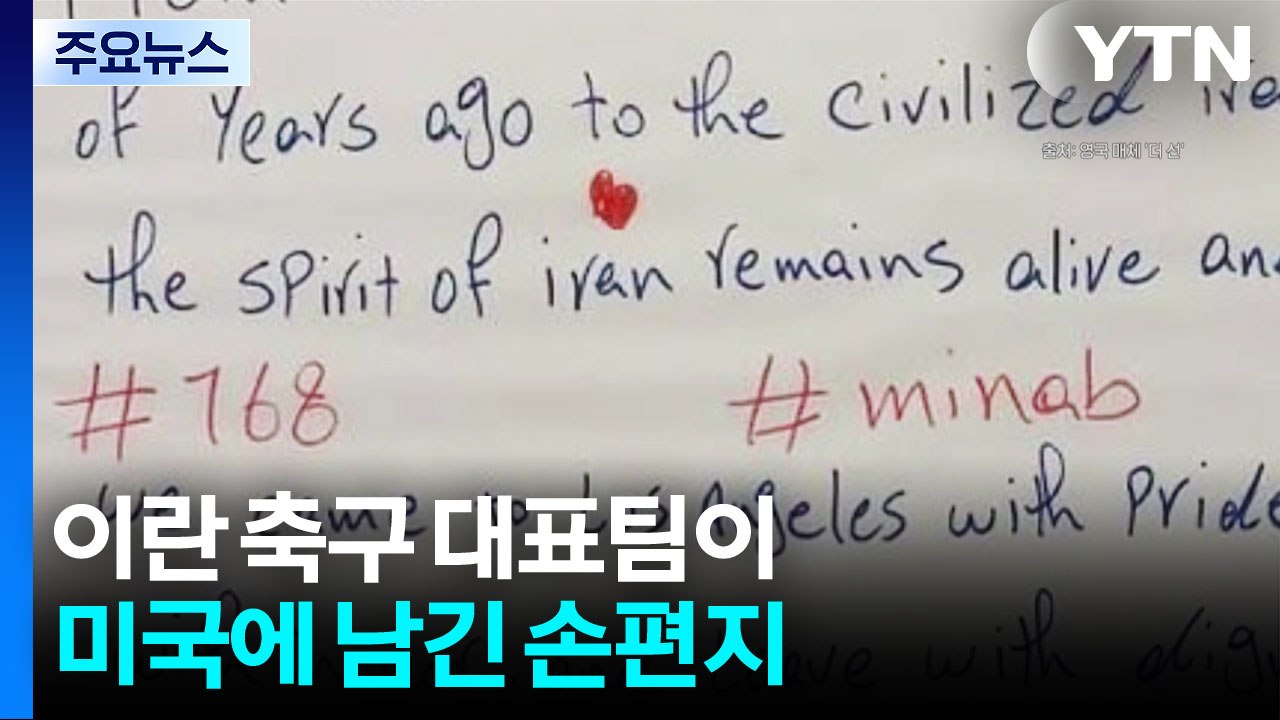 주요뉴스
YTN
of Years ago to the civilized
출처: 영국 매체 '더 선'
the spirit of iran remains alive
#168 #minab
Angeles with Pride
이란 축구 대표팀이
미국에 남긴 손편지
with